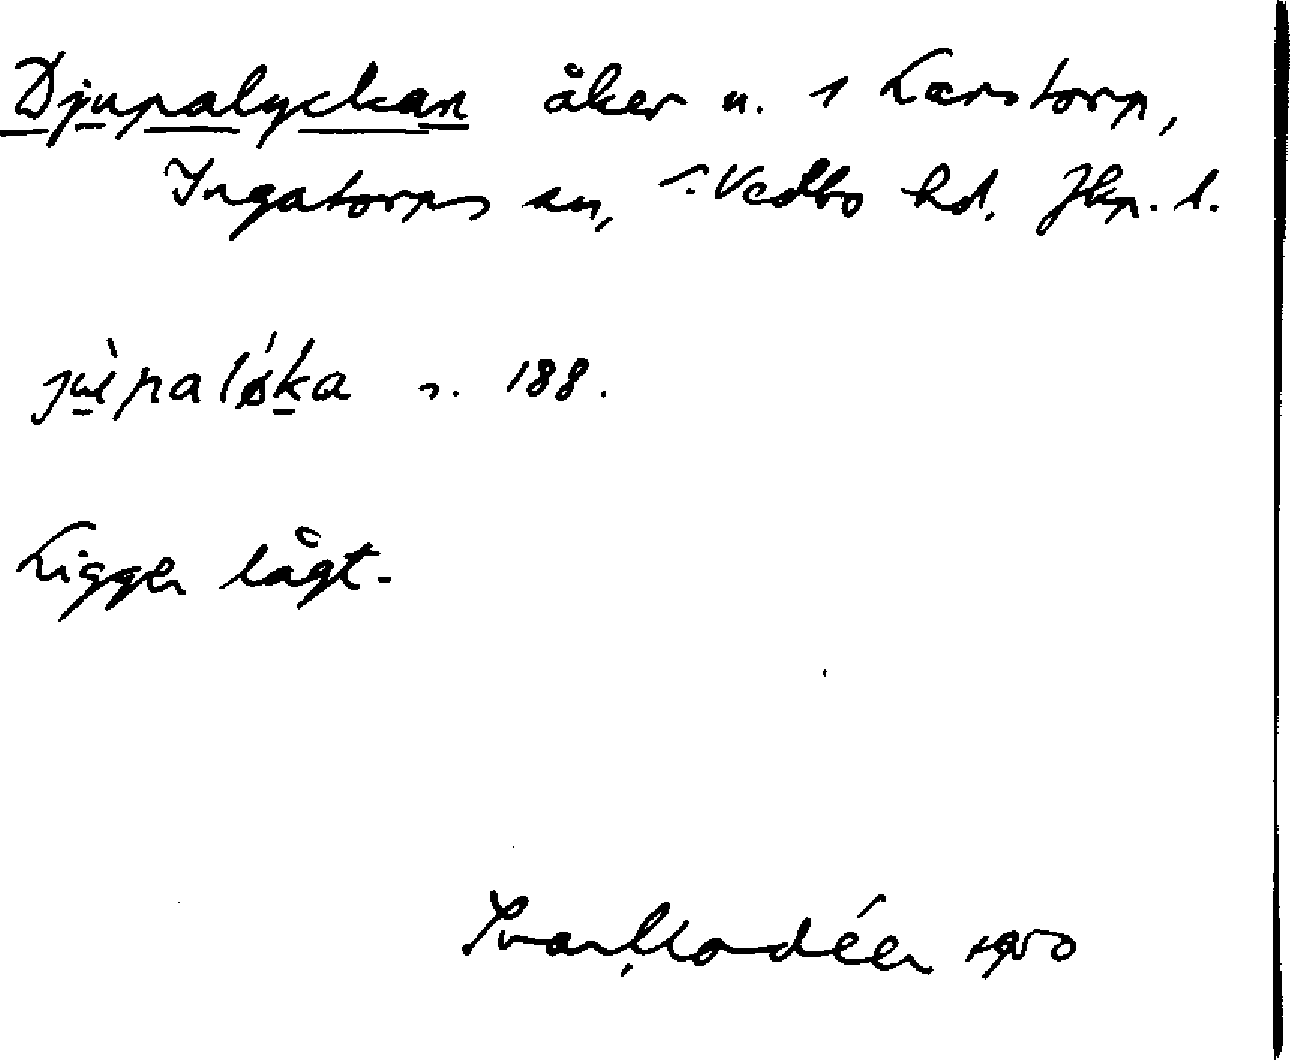 Djupalyckan åker u. 1 Larstorp,
Ingatorps sn, S. Vedbo hd. Jkp. l.
jùpalø̀ka s. 188.
Ligger lågt.
Ivar Modéer 1950